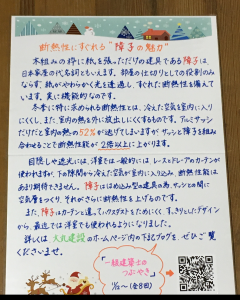 断熱性にすぐれる"障子の魅力"
木組みの枠に紙を張っただけの建具である障子は
日本家屋の代名詞ともいえます。部屋の仕切りとしての役割のみ
ならず、紙がやわらかく光を透過し、すぐれた断熱性を備えて
います。実に機能的なのです。
冬季に特に求められる断熱性とは、冷えた空気を室内に入り
にくくし、また室内の熱を外に放出しにくくするものです。アルミサッシ
だけだと室内の熱の52%が逃げてしまいますが、サッシと障子を組み
合わせることで断熱性能が2倍以上に上がります。
目隠しや遮光には、洋室で一般的にはレースのドレープカーテンが
使われますが、下の隙間から冷えた空気が室内に入り込み、断熱性能は
あまり期待できません。障子ははめ込み型の建具の為、サッシとの間に
空気層をつくり、それがさらに断熱性を上げるのです。
また、障子はカーテンと違ってハウスダストをためにくく、すっきりしたデザイン
から、最近では洋室でも使われるようになりました。
詳しくは大丸建設のホームページ内の下記ブログを、ぜひご覧
くださいませ。
一級建築士の
つぶやき
1/12~(全8回)